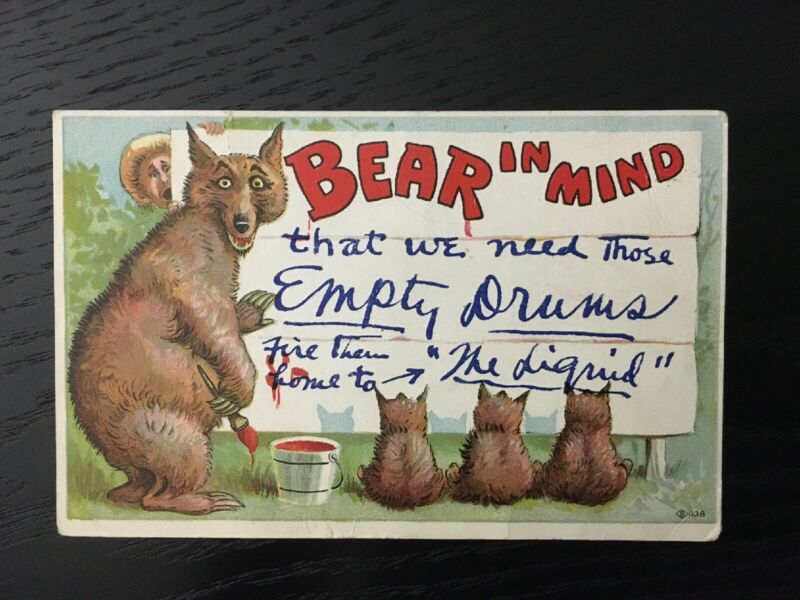 BEAR IN MIND
that we need Those
Empty Drums
Fire them
home to → "The Liquid"
B 938